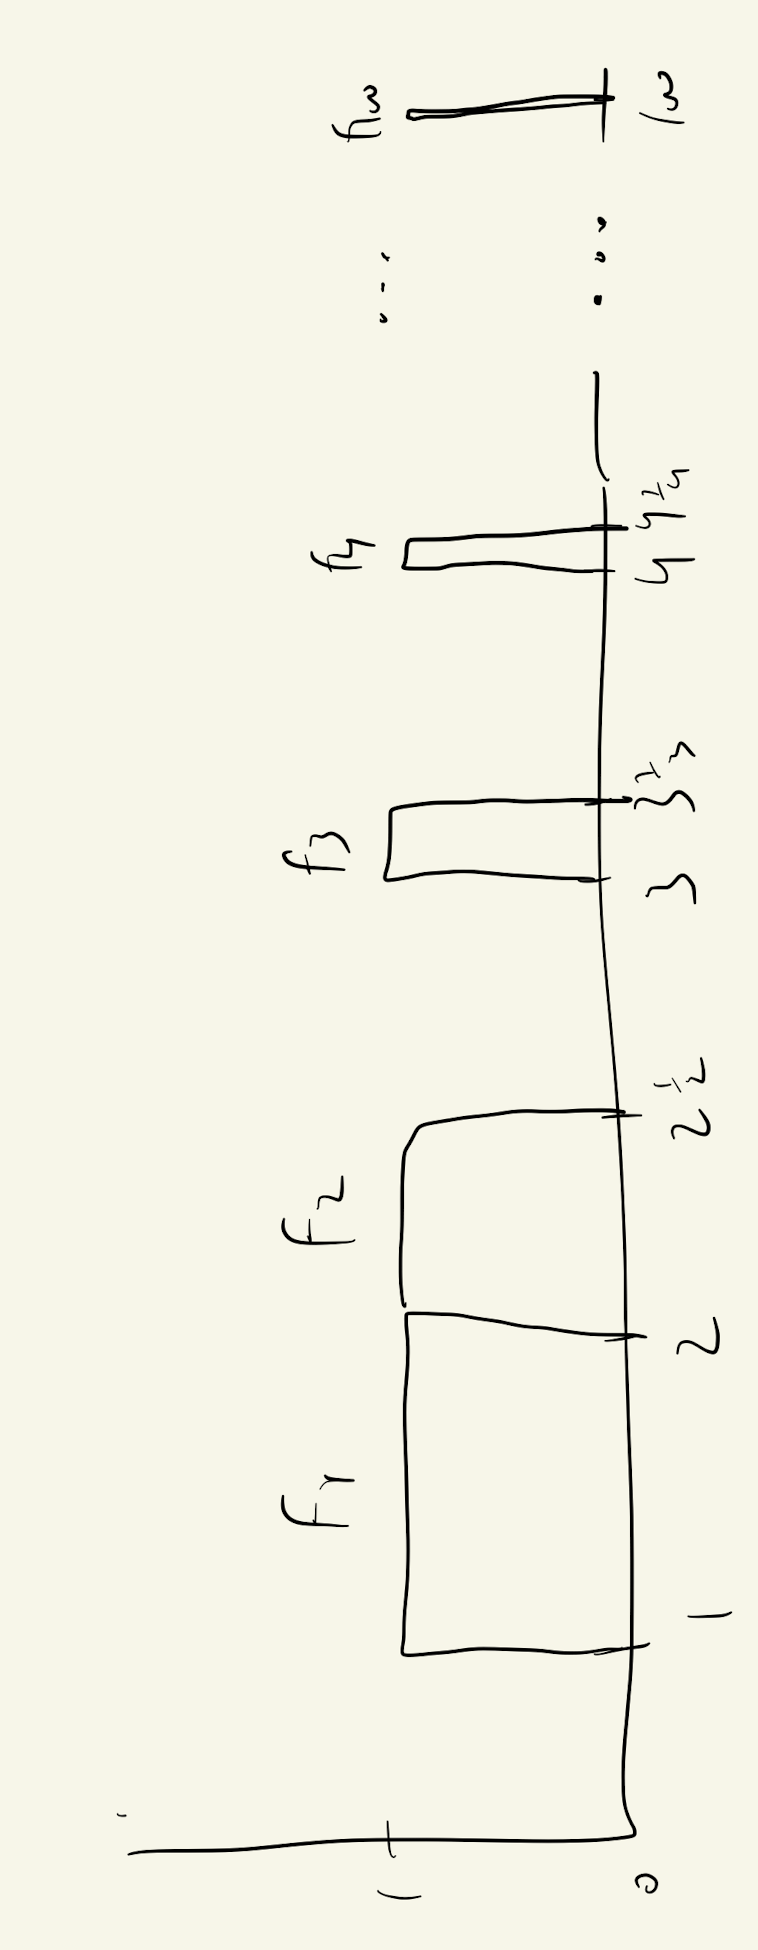 f1 f2 f3 f4 ... fω
1
0 1 2 2 1/2 3 3 1/3 4 4 1/4 ... 1ω